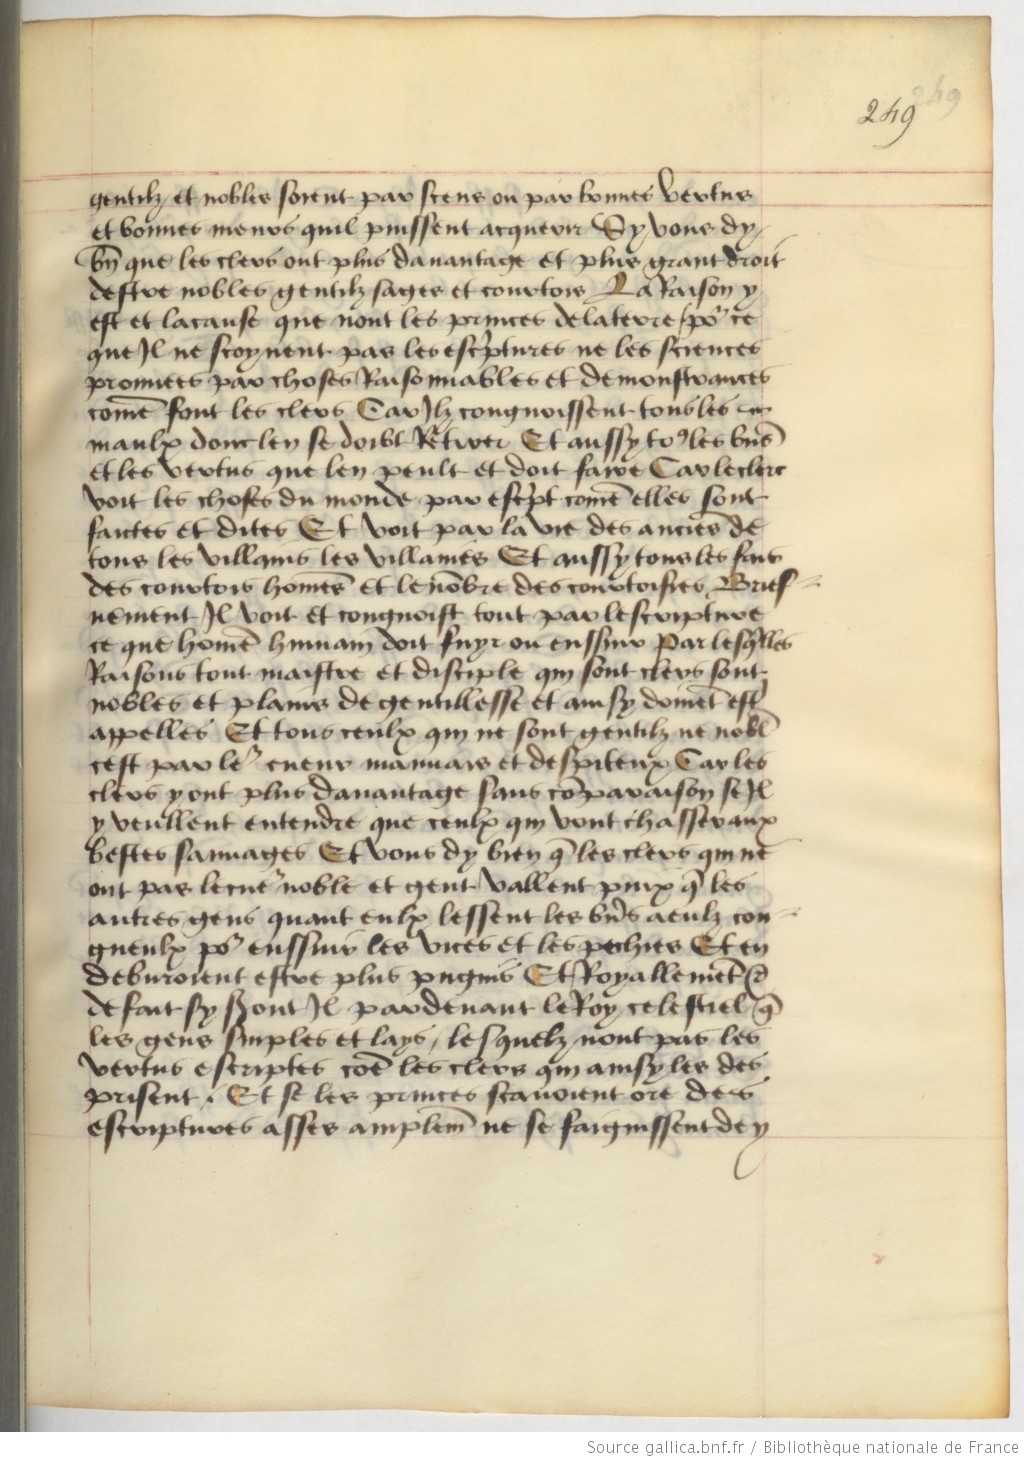 249
gentilz et nobles soient par scens ou par bonnes vertus
et bonnes meurs quil puissent acquerir Sy vous dy
bn̄ que les clers ont plus davantage et plus grant droit
destre nobles gentilz sages et courtois La Raison y
est et la cause que nont les princes de la terre / po᷒ ce
que Jl ne scoyuent pas les esc̕ptures ne les sciences
prouuees par choses Raisonnables et demonstrances
com̄e font les clers Car Jlz congnoissent tous les
maulx dont len se doibt Retirer Et aussy to᷒ les bn̄s
et les vertus que len peult et doit faire Car le clerc
voit les choses du monde par esc̕pt com̄e elles sont
faictes et dites Et voit par la vie des anciēs de
tous les villains les villanies Et aussy tous les fais
des courtois hom̄es et le nōbre des courtoisies Brief-
nement Jl voit et congnoist tout par lescripture
ce que hom̄e humain doit fuyr ou enssuir Par lesq̄lles
Raisons tout maistre et disciple qui sont clers sont
nobles et plains de gentillesse et ainsy doiuēt est᷒
appelles Et tous ceulx qui ne sont gentilz ne nobl̄
cest par le᷒ cueur mauuais et despiteux Car les
clers y ont plus davantage sans cōparaison se Jl
y veullent entendre que ceulx qui vont chasser aux
bestes sauuages Et vous dy bien q̄ les clers qui ne
ont pas le cue᷒ noble et gent vallent pnix q̄ les
autres gens quant eulx lessent les bn̄s a eulz con-
gneulx po᷒ enssuir les vices et les pechies Et en
deburoient estre plus pugnis Et Royallemēt
de fait sy s̄ont Jl par deuant le Roy celestiel q̄
les gens simples et lays / lesquelz nont pas les
vertus escriptes cōe les clers qui ainsy les des
prisent . Et se les princes scauoient ore des
escriptures asses amplem̄ ne se faignissent de y
Source gallica.bnf.fr / Bibliothèque nationale de France